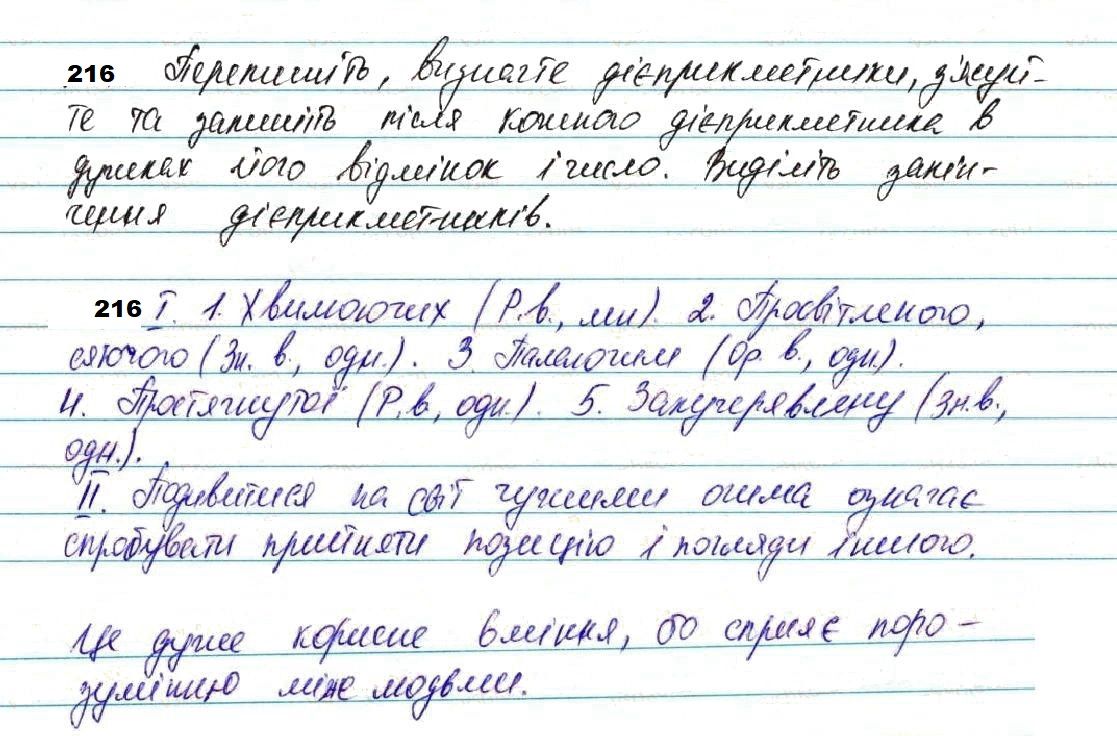 216 Перепишіть, визначте дієприкметники, з'ясуй-
те та запишіть після кожного дієприкметника в
дужках його відмінок і число. Виділіть закін-
чення дієприкметників.
216 I. 1. Хвилюючих (Р.в., мн). 2. Просвітленого,
сяючого (Зн. в., одн.). 3. Палаючим (Ор. в., одн.).
4. Простягнутої (Р.в, одн.). 5. Закучерявлену (Зн.в.,
одн.).
II. Подивитися на світ чужими очима означає
спробувати прийняти позицію і погляди іншого.
Це дуже корисне вміння, бо сприяє поро-
зумінню між людьми.